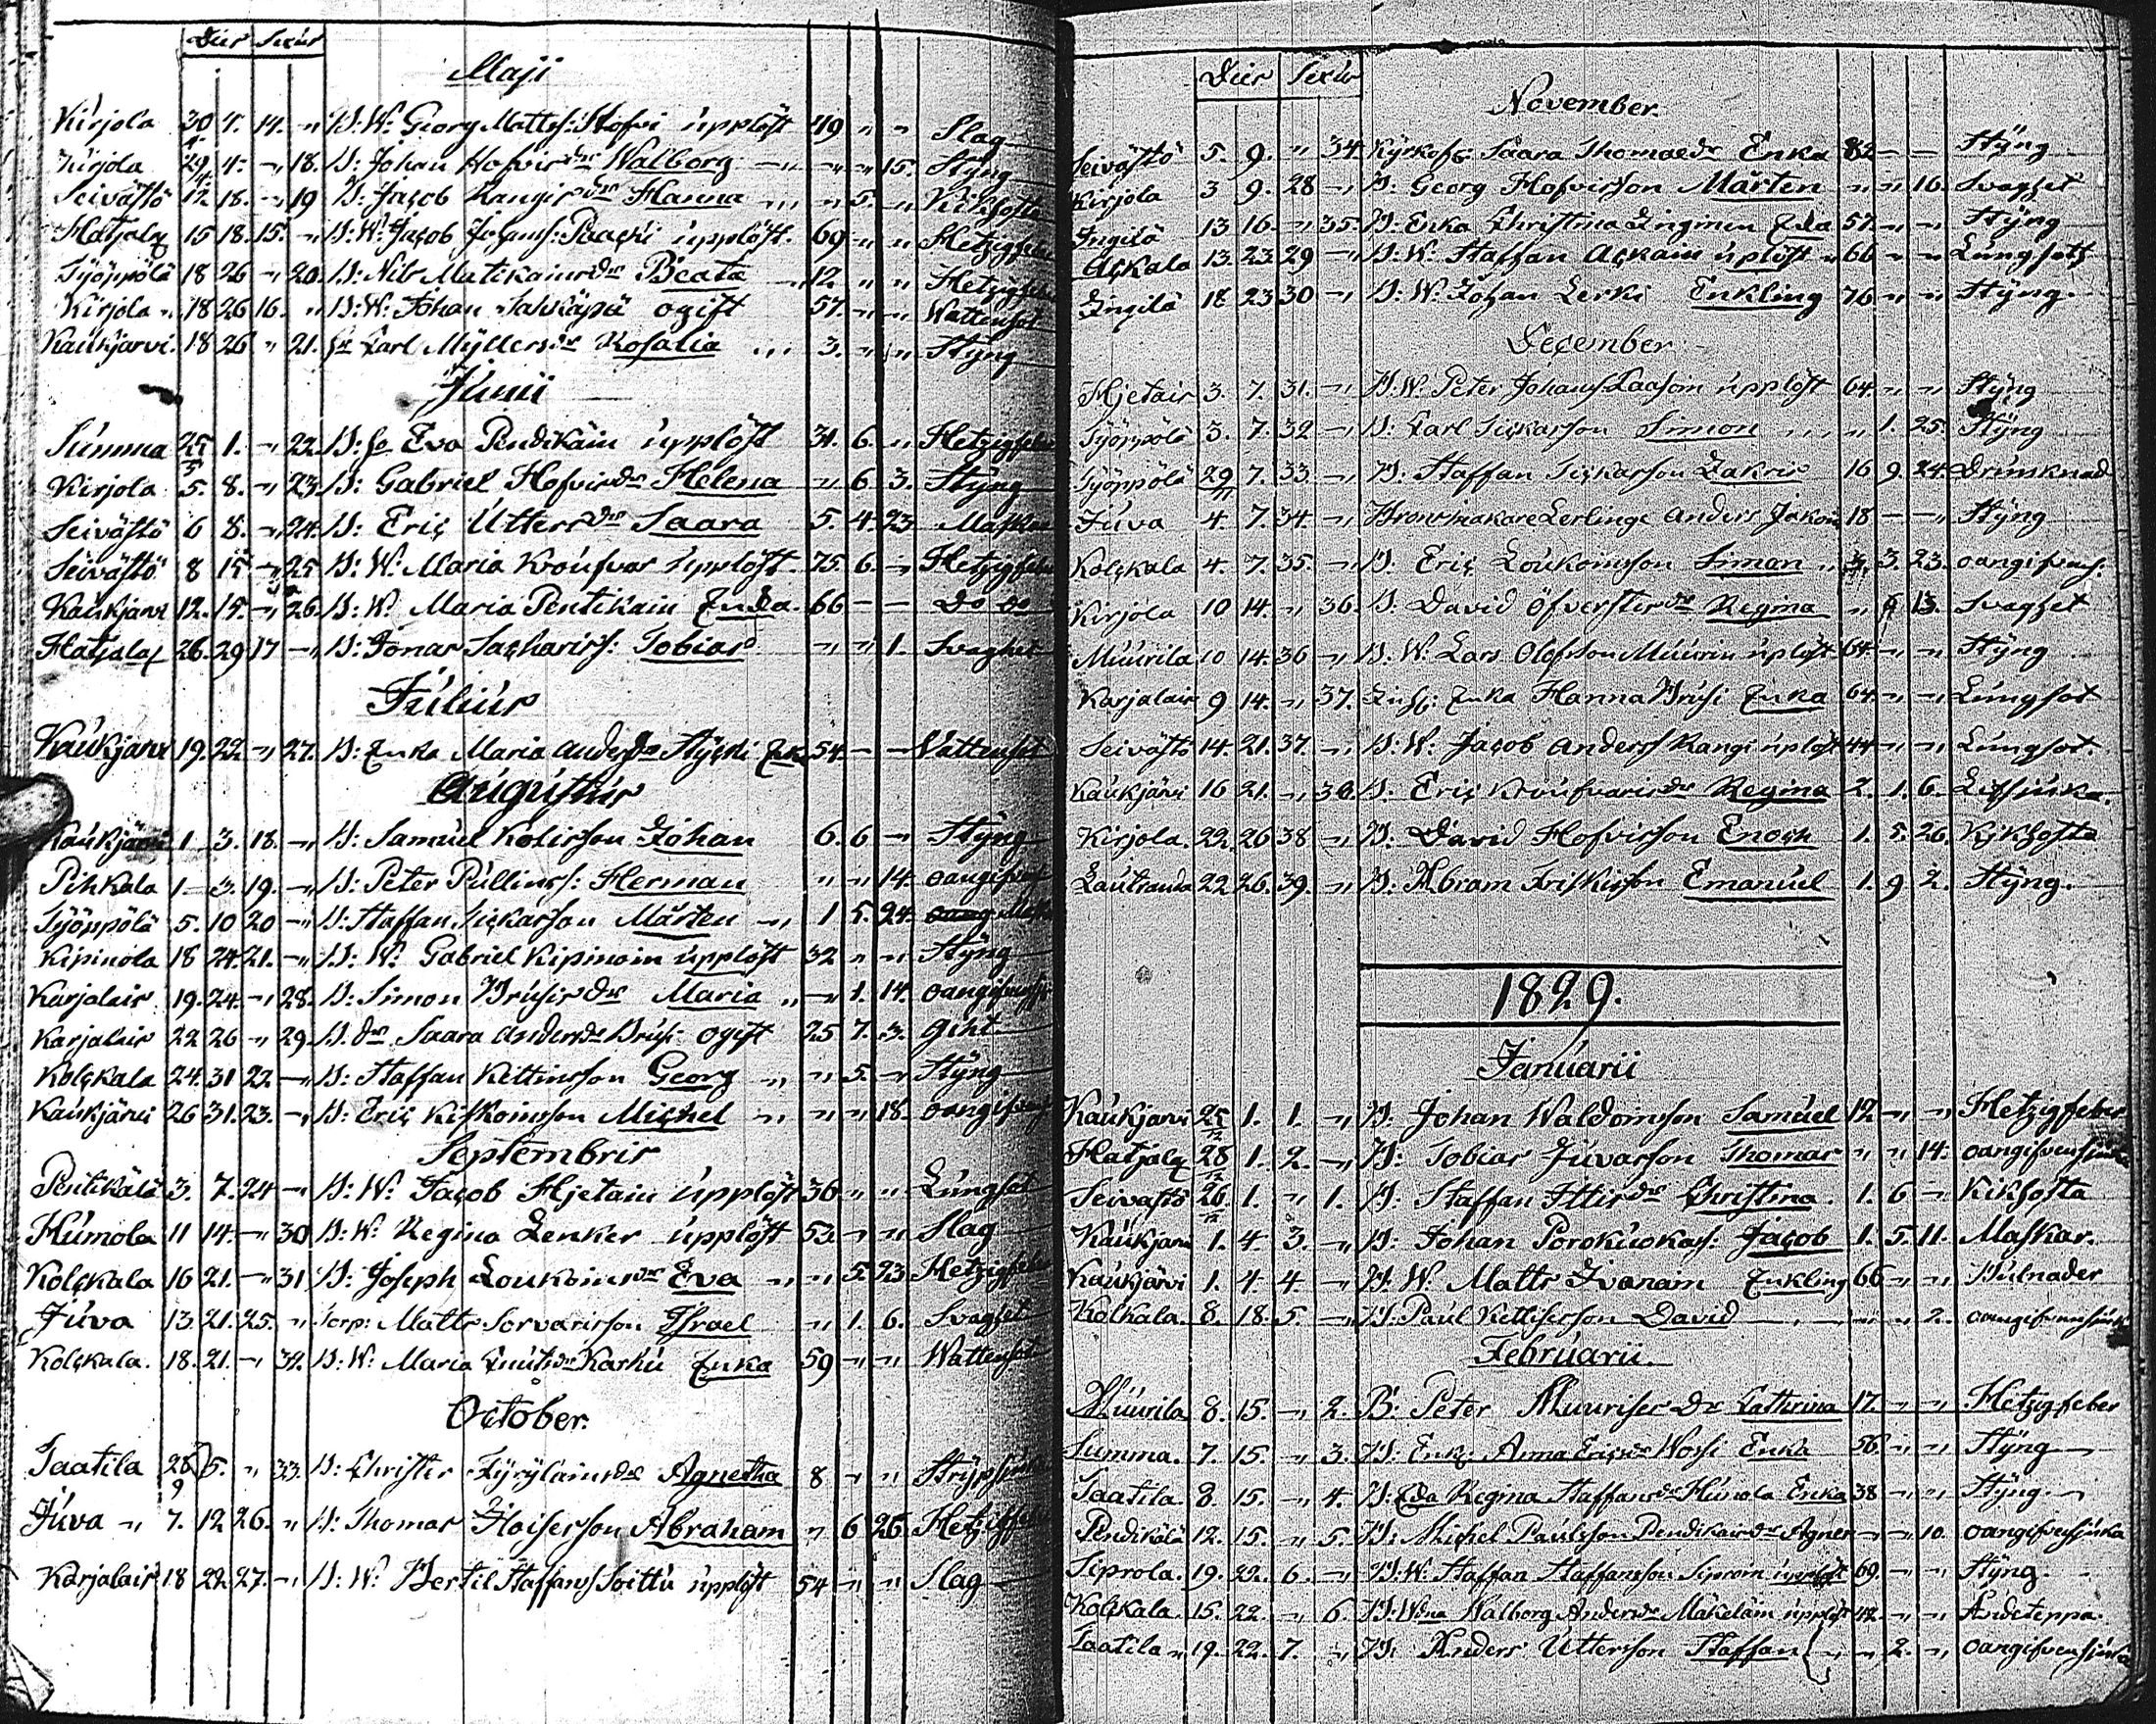 Dies Sexus
Maji
Kirjola 30/4 4. 14. " B: W: Georg Matts: Hofvi upplöst 49 " " Slag
Kirjola 29/4 4. " 18. B: Johan Hofvis dr Walborg " " 15. Styng
Seivästö 12 18. " 19 B: Jacob Rangis dr Hanna " 5. " Kikhosta
Hatjala 15 18. 15. " B: W: Jacob Johans: Paacki upplöst. 69 " " Hetzigfeber
Työppölä 18 26 " 20. B: Nils Matikains dr Beata 12 " " Hetzigfeber
Kirjola " 18 26 16. " B: W: Johan ogift 57. " " Wattensot
Kaukjärvi. 18 26 " 21. Carl Myllers dr Rosalia 3. " " Styng
Junii
Summa 25/5 1. " 22. B: Eva Pendikäin upplöst 31. 6. " Hetzigfeber
Kirjola 5. 8. " 23. B: Gabriel Hofvis dr Helena " 6. 3. Styng
Seivästö 6 8. " 24. B: Eric Utters dr Saara 5. 4. 23. Maskar
Seivästö 8 15 " 25 B: W: Maria Kroufvar upplöst 75. 6. " Hetzigfeber
Kaukjärvi 12. 15. " 26. B: W: Maria Pentikain Enka. 66 — — Do do
Hatjala 26. 29 17 " B: Jonas Sachariss: Tobias " " 1. Svaghet
Julius
Kaukjärvi 19. 22. " 27. B: Enka Maria Anders dr Stycki Enka 54. — — Vattensot
Augustus
Kaukjärvi 1 3. 18. " B: Samuel Kolisson Johan 6. 6 " Styng
Pihkala 1 3. 19. " B: Peter Pullinss: Herman " " 14. oangifven
Työppölä 5. 10 20 " B: Staffan Sickarsson Mårten " 1 5. 24. Mask
Kipinola 18 24. 21. " B: W: Gabriel Kipinoin upplöst 32 " " Styng
Karjalais 19. 24. " 28. B: Simon Brusis dr Maria " 1. 14. oangifven
Karjalais 22 26 " 29. B. dr Saara Anders dr Brusi ogift 25 7. 3. Gikt
Kolckala 24. 31 22. " B: Staffan Kettinsson Georg " " 5. " Styng
Kaukjärvi 26 31. 23. " B: Eric Kiskoinsson Michel " " " 18. oangifven
Septembris
Pentikälä 3. 7. 24 " B: W: Jacob Hjetain upplöst 36 " " Lungsot
Humola 11 14. " 30 B: W: Regina Lenker upplöst 53. " " Slag
Kolckala 16 21. " 31 B: Joseph Loukoins dr Eva " " 5. 23. Hetzigfeber
Juva 13. 21. 25. " Torp: Matts Sorvarisson Israel " 1. 6. Svaghet
Kolckala. 18. 21. " 32. B: W: Maria Knuts dr Karhu Enka 59 " " Wattensot
October.
Taatila 28/9 5. " 33. B: Christer Tyrylains dr Agnetha 8 " " Strypsjuka
Juva " 7. 12 26. " B: Thomas Hoisersson Abraham " 6 26. Hetzigfeber
Karjalais 18 22. 27. " B: W: Bertil Staffans Soittu upplöst 54 " " Slag
Dies Sexus
November.
Seivästö 5. 9. " 34. Kyrkofg: Saara Thomae dr Enka 82 — — Styng
Kirjola 3 9. 28 " B: Georg Hofvisson Mårten " " 16. Svaghet
Ingilä 13 16. " 35. B: Enka Christina Inginen Eda 57. " " Styng
Ackala 13. 23. 29 " B: W: Staffan Ackain uplöst " 66 " " Lungsot
Ingilä 18 23 30 " B: W: Johan Lerki Enkling 76 " " Styng.
December
Hjetais 3. 7. 31. " B: W: Peter Johans Laasoin upplöst 64. " " Styng
Työppölä 3. 7. 32 " B: Carl Sickarsson Simon " 1. 25. Styng
Työppölä 29/11 7. 33. " B: Staffan Sickarsson Zakris 16 9. 24. Drunknad
Juva 4. 7. 34. " Kronomakare Lerlinge Anders Jakoin 18 — " Styng
Kolckala 4. 7. 35. " B. Eric Loukoinsson Simon " 3. 3. 23. oangifvens.
Kirjola 10 14. " 36. B. David Öfversters dr Regina " 6 13. Svaghet
Muurila 10 14. 36 " B. W: Lars Olofsson Muurin uplöst 64. " " Styng
Karjalais 9 14. " 37. Inhs: Enka Hanna Brusi Enka 64 " " Lungsot
Seivästö 14. 21. 37. " B: W: Jacob Anders Rangi uplöst 44 " " Lungsot
Kaukjärvi 16 21. " 38. B. Eric Kroufvaris dr Regina 2. 1. 6. Litsjuka.
Kirjola. 22. 26 38 " B: David Hofvisson Enoch 1. 5. 26. Kikhosta
Lautranda 22 26. 39. " B: Abram Friskisson Emanuel 1. 9 2. Styng.
1829.
Januarii
Kaukjärvi 25/12 1. 1. " B. Johan Waldoinsson Samuel 12 " " Hetzigfeber
Hatjala 28/12 1. 2. " B: Tobias Juvasson Thomas " " 14. oangifvensjuka
Seivästö 26/12 1. " 1. B: Staffan Ittis dr Christina. 1. 6 " Kikhosta
Kaukjärvi 1. 4. 3. " B: Johan Porokuokas: Jacob 1. 5. 11. Maskar.
Kaukjärvi 1. 4. 4. " B. W: Matts Ivanain Enkling 66 " " Bulnader
Kolkala. 8. 18. 5. " B: Paul Kettisersson David " " 2. oangifvensjuka
Februarii.
Muurila 8. 15. " 2. B: Peter Muurises dr Cathrina 17. " " Hetzigfeber
Summa. 7. 15. " 3. B: Enk: Anna Erics dr Wossi Enka 56. " " Styng
Taatila. 8. 15. " 4. B: Eda Regina Staffans dr Humola Enka 38 " " Styng.
Pendikälä 12. 15. " 5. B: Michel Paulsson Pendikais dr Agnes " " 10. oangifvensjuka
Siprola. 19. 22. 6. " B: W: Staffan Staffansson Siproin upplöst 69. " " Styng.
Kolckala. 15. 22. " 6. B: Wdna Walborg Anders dr Mäkeläin upplöst 42. " " Andetäppa.
Taatila " 19. 22. 7. " B: Anders Uttersson Staffan " " 2. " oangifvensjuka